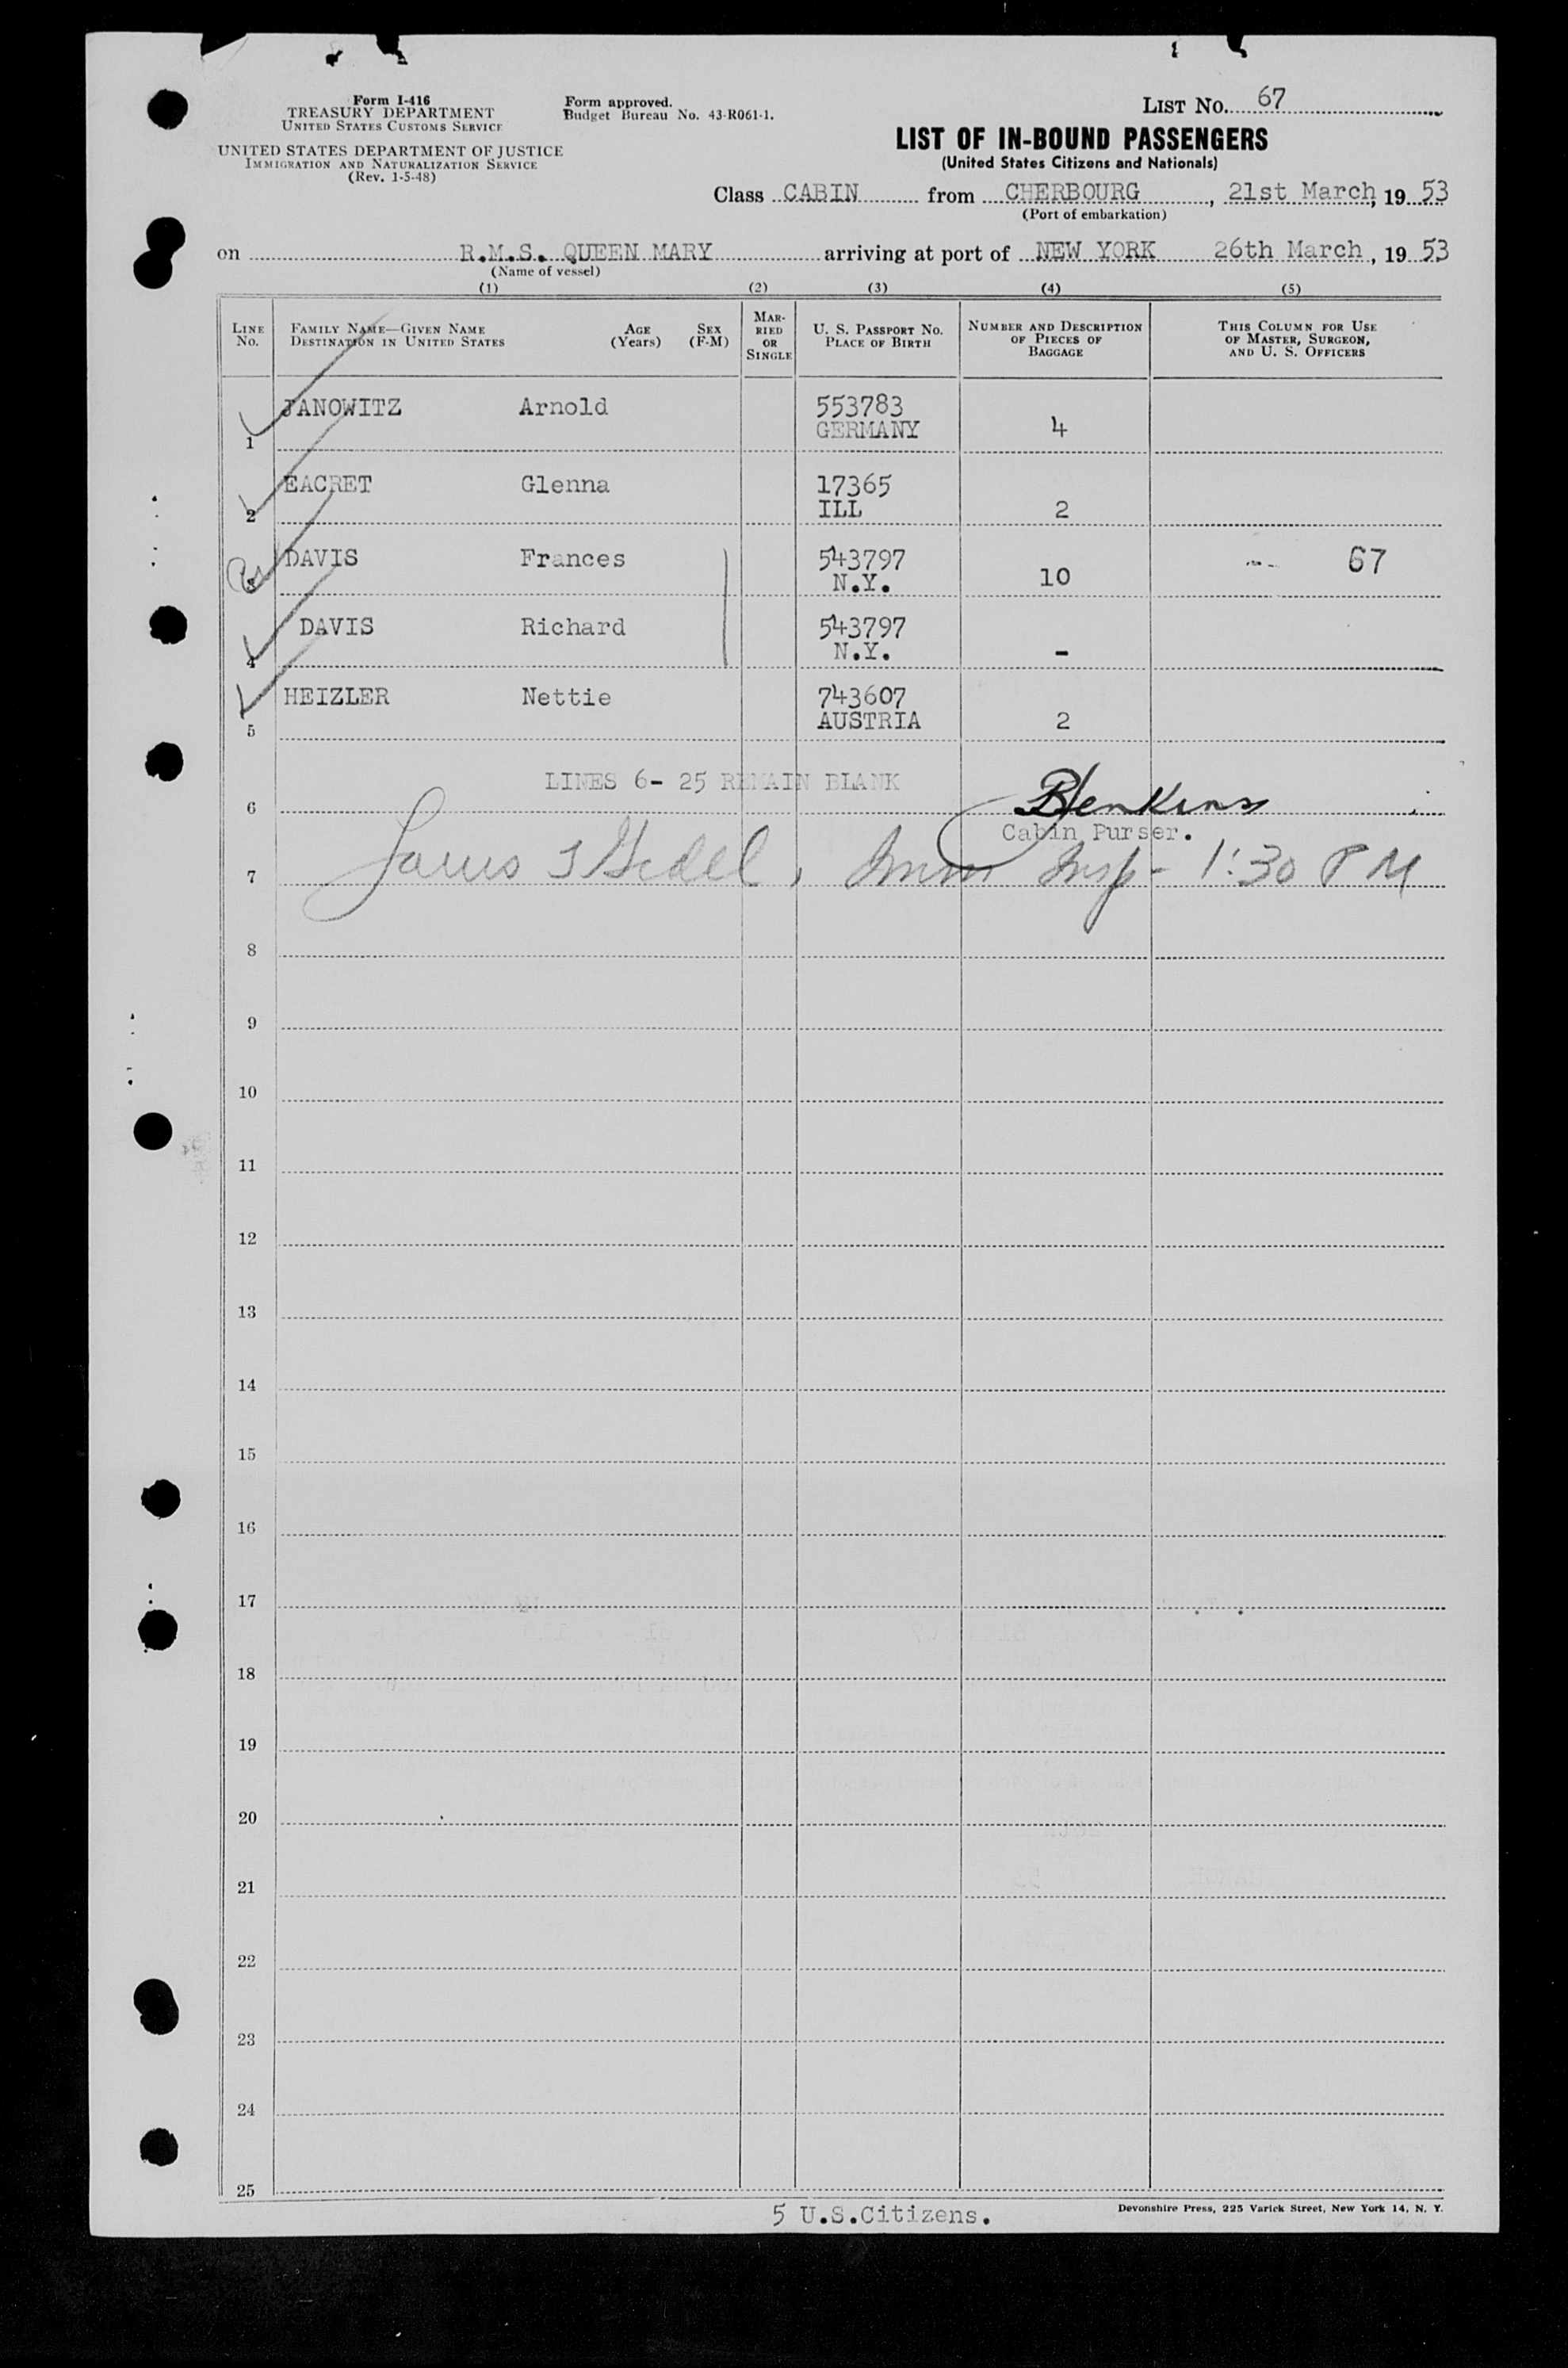 Form I-416
TREASURY DEPARTMENT
UNITED STATES CUSTOMS SERVICE
UNITED STATES DEPARTMENT OF JUSTICE
IMMIGRATION AND NATURALIZATION SERVICE
(Rev. 1-5-48)
Form approved.
Budget Bureau No. 43-R061-1.
LIST No. 67
LIST OF IN-BOUND PASSENGERS
(United States Citizens and Nationals)
Class CABIN from CHERBOURG, 21st March, 1953
(Port of embarkation)
on R.M.S. QUEEN MARY arriving at port of NEW YORK 26th March, 1953
(Name of vessel)
(1) (2) (3) (4) (5)
LINE No.
FAMILY NAME—GIVEN NAME
DESTINATION IN UNITED STATES
AGE (Years)
SEX (F-M)
MARRIED OR SINGLE
U. S. PASSPORT No.
PLACE OF BIRTH
NUMBER AND DESCRIPTION OF PIECES OF BAGGAGE
THIS COLUMN FOR USE OF MASTER, SURGEON, AND U. S. OFFICERS
JANOWITZ Arnold 553783
1 GERMANY 4
EACRET Glenna 17365
2 ILL 2
DAVIS Frances 543797 67
3 N.Y. 10
DAVIS Richard 543797
4 N.Y. -
HEIZLER Nettie 743607
5 AUSTRIA 2
LINES 6- 25 REMAIN BLANK
6
Cabin Purser.
7 Imm Insp - 1:30 PM
8
9
10
11
12
13
14
15
16
17
18
19
20
21
22
23
24
25
5 U.S.Citizens.
Devonshire Press, 225 Varick Street, New York 14, N. Y.